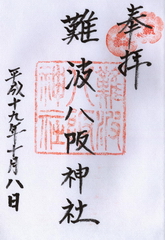 奉拝
難波八阪神社
平成十九年十一月八日